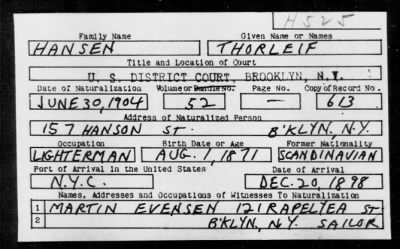 H525
Family Name Given Name or Names
HANSEN THORLEIF
Title and Location of Court
U. S. DISTRICT COURT, BROOKLYN, N.Y.
Date of Naturalization Volume or Bundle No. Page No. Copy of Record No.
JUNE 30, 1904 52 — 613
Address of Naturalized Person
157 HANSON ST. B'KLYN, N.Y.
Occupation Birth Date or Age Former Nationality
LIGHTERMAN AUG. 1, 1871 SCANDINAVIAN
Port of Arrival in the United States Date of Arrival
N.Y.C. DEC. 20, 1898
Names, Addresses and Occupations of Witnesses To Naturalization
1 MARTIN EVENSEN 121 RAPELYEA ST
2 B'KLYN, N.Y. SAILOR